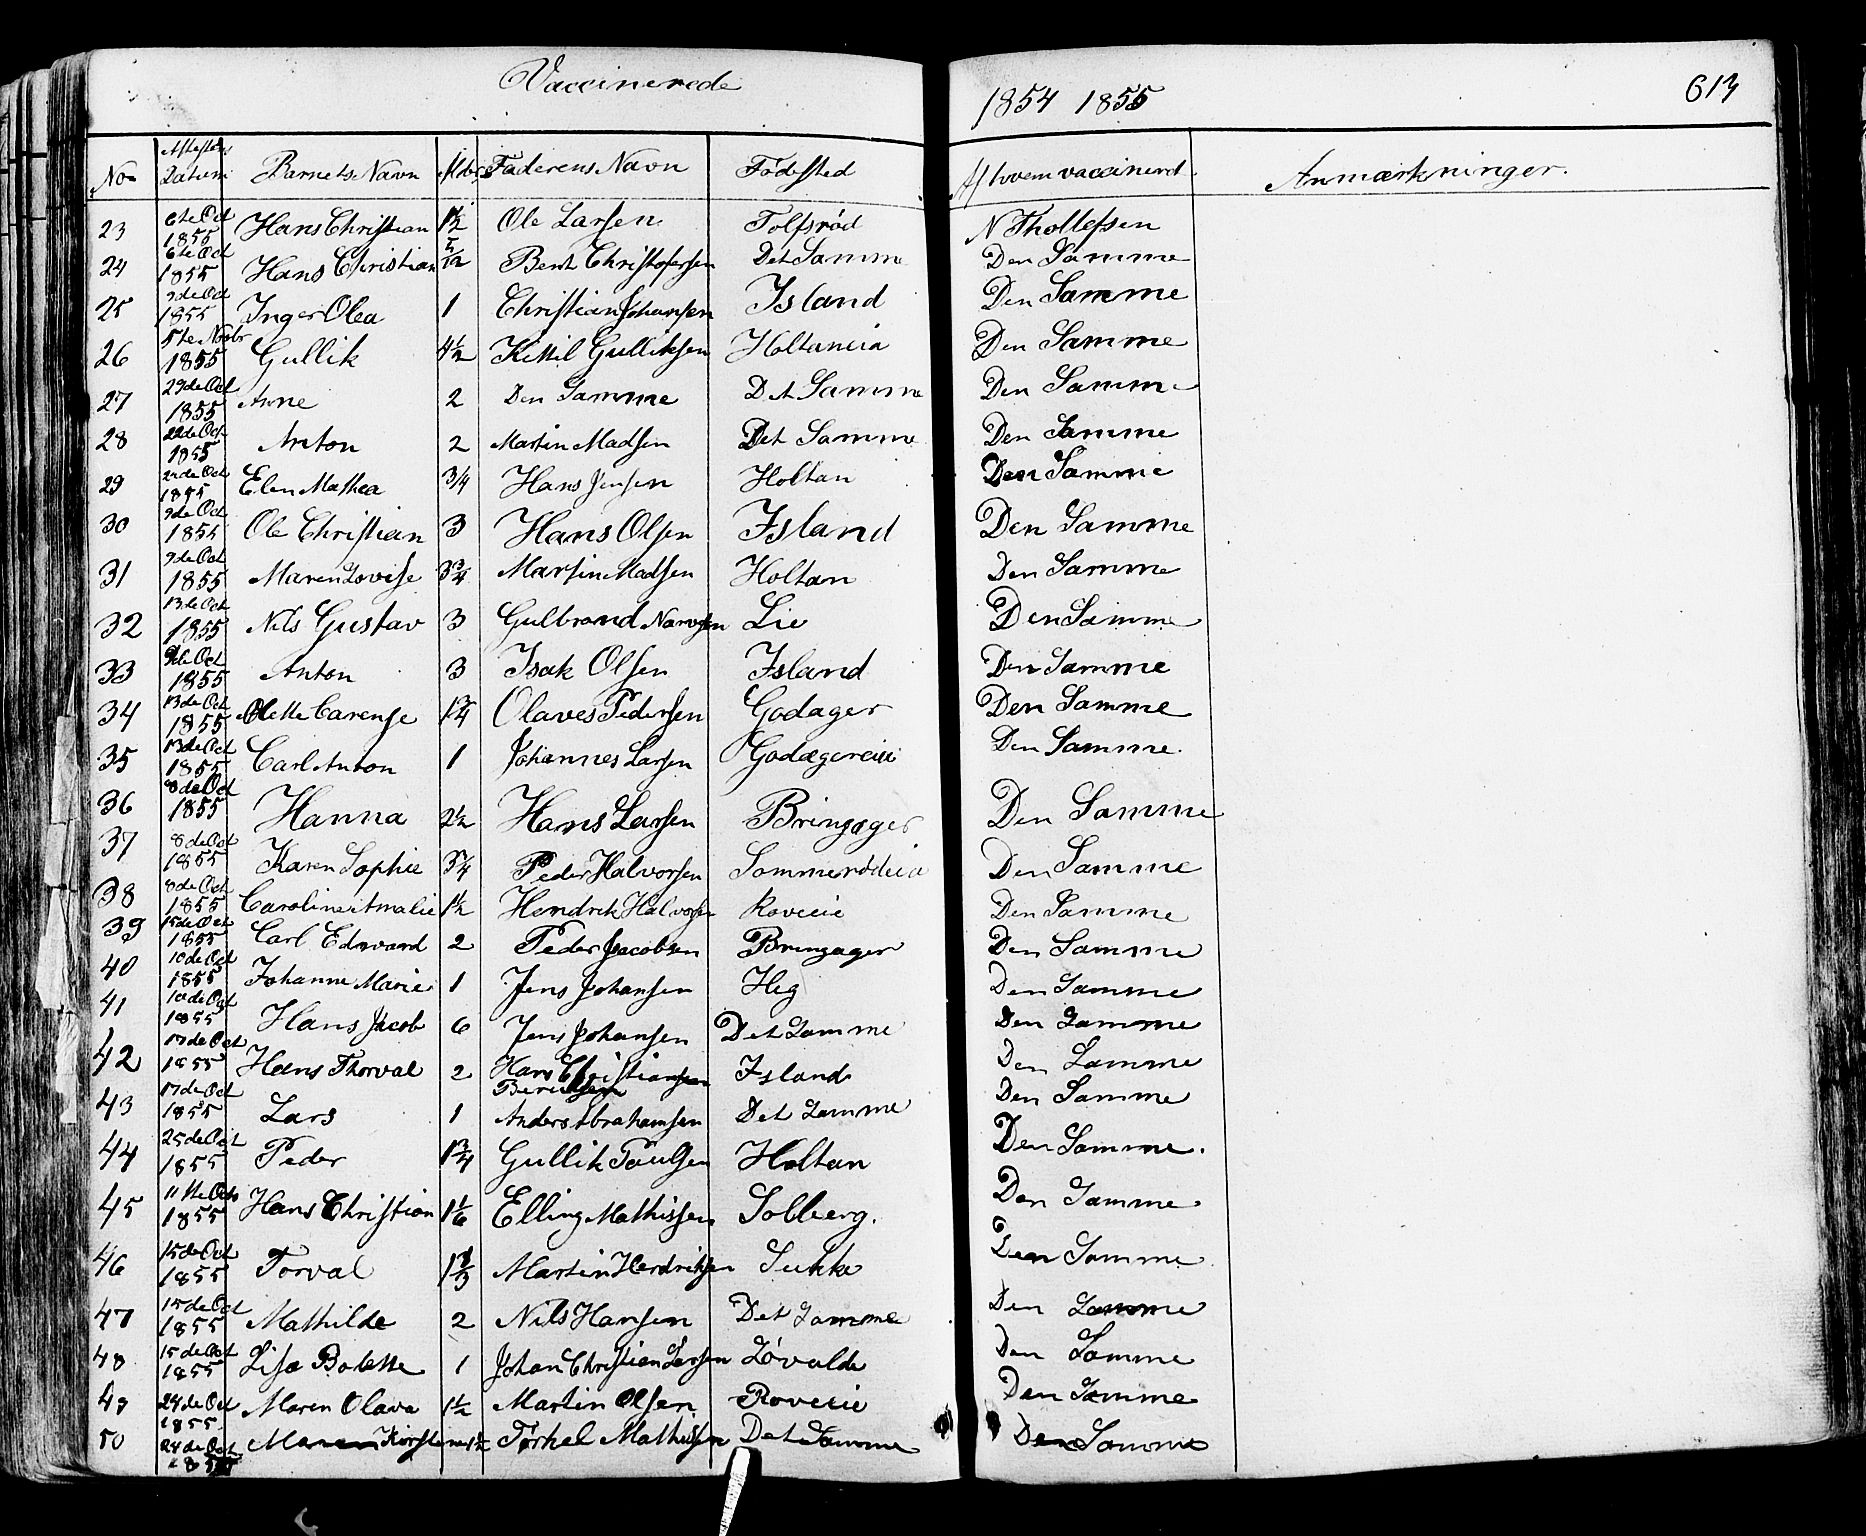 Vaccinerede 1854 1855 613
No Attestens Datum Barnets Navn Alder Faderens Navn Fødested Af hvem vaccinered. Anmærkninger.
23 6te Oct 1855 Hans Christian 1½ Ole Larsen Tolfsrød N Thollefsen
24 6te Oct 1855 Hans Christian 5/12 Bent Christofersen Det Samme Den Samme
25 9de Oct 1855 Inger Olea 1 Christian Johansen Island Den Samme
26 5te Novbr 1855 Gullik 4½ Kittil Gulliksen Holtaneia Den Samme
27 29de Oct 1855 Anne 2 Den Samme Det Samme Den Samme
28 22de Oct 1855 Anton 2 Martin Madsen Det Samme Den Samme
29 1855 Elen Mathea 3/4 Hans Jensen Holtan Den Samme
30 9de Oct 1855 Ole Christian 3 Hans Olsen Island Den Samme
31 9de Oct 1855 Maren Lovise 3¾ Martin Madsen Holtan Den Samme
32 13de Oct 1855 Nils Gustav 3 Gulbrand Lie Den Samme
33 Oct 1855 Anton 3 Isak Olsen Island Den Samme
34 13de Oct 1855 Olette Carense 1¾ Olaves Pedersen Godager Den Samme
35 13de Oct 1855 Carl Anton 1 Johannes Larsen Godagereie Den Samme.
36 8de Oct 1855 Hanna 2½ Hans Larsen Bringager Den Samme
37 8de Oct 1855 Karen Sophie Peder Halvorsen Sommerødeia Den Samme
38 8de Oct 1855 Caroline Amalie 1½ Hendrik Halvorsen Roveeie Den Samme
39 15de Oct 1855 Carl Edvard 2 Peder Jacobsen Bringager Den Samme
40 10de Oct 1855 Johanne Marie 1 Jens Johansen Heg Den Samme
41 10de Oct 1855 Hans Jacob 6 Jens Johansen Det Samme Den Samme
42 17de Oct 1855 Hans Thorval 2 Hans Christiansen Island Den Samme
43 17de Oct 1855 Lars 1 Anders Abrahamsen Det Samme Den Samme
44 25de Oct 1855 Peder 1¾ Gullik Paulsen Holtan Den Samme.
45 11te Octo 1855 Hans Christian 1⅙ Elling Mathissen Solberg. Den Samme
46 15de Oct 1855 Torval Martin Hendriksen Sukke Den Samme
47 15de Oct 1855 Mathilde 2 Nils Hansen Det Samme Den Samme
48 15de Oct 1855 Lisa Bolette 1 Johan Christian Larsen Løvalde Den Samme
49 24de Oct 1855 Maren Olava 1½ Martin Olsen Roveeie Den Samme
50 24de Oct 1855 Maren Torkel Mathissen Det Samme Den Samme